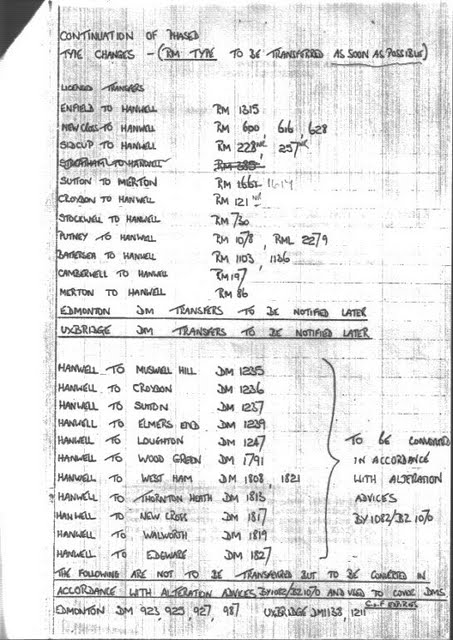 CONTINUATION OF PHASED
TYPE CHANGES - (RM TYPE TO BE TRANSFERRED AS SOON AS POSSIBLE)
LICENSED TRANSFERS
ENFIELD TO HANWELL RM 1315
NEW CROSS TO HANWELL RM 600, 616, 628
SIDCUP TO HANWELL RM 228 NK, 257 NK
STREATHAM TO HANWELL RM 385
SUTTON TO MERTON RM 1665 1614
CROYDON TO HANWELL RM 121 NK
STOCKWELL TO HANWELL RM 730
PUTNEY TO HANWELL RM 1078, RML 2279
BATTERSEA TO HANWELL RM 1103, 1136
CAMBERWELL TO HANWELL RM 197
MERTON TO HANWELL RM 86
EDMONTON DM TRANSFERS TO BE NOTIFIED LATER
UXBRIDGE DM TRANSFERS TO BE NOTIFIED LATER
HANWELL TO MUSWELL HILL DM 1235
HANWELL TO CROYDON DM 1236
HANWELL TO SUTTON DM 1237
HANWELL TO ELMERS END DM 1239
HANWELL TO LOUGHTON DM 1247
HANWELL TO WOOD GREEN DM 1791
HANWELL TO WEST HAM DM 1808, 1821
HANWELL TO THORNTON HEATH DM 1813
HANWELL TO NEW CROSS DM 1817
HANWELL TO WALWORTH DM 1819
HANWELL TO EDGWARE DM 1827
TO BE CONVERTED
IN ACCORDANCE
WITH ALTERATION
ADVICES
BY1082/BZ1070
THE FOLLOWING ARE NOT TO BE TRANSFERRED BUT TO BE CONVERTED IN
ACCORDANCE WITH ALTERATION ADVICES BY1082/BZ1070 AND USED TO COVER DMS
C.O.F EXPIRIES
EDMONTON DM 923, 925, 927, 987 UXBRIDGE DM1138, 1211